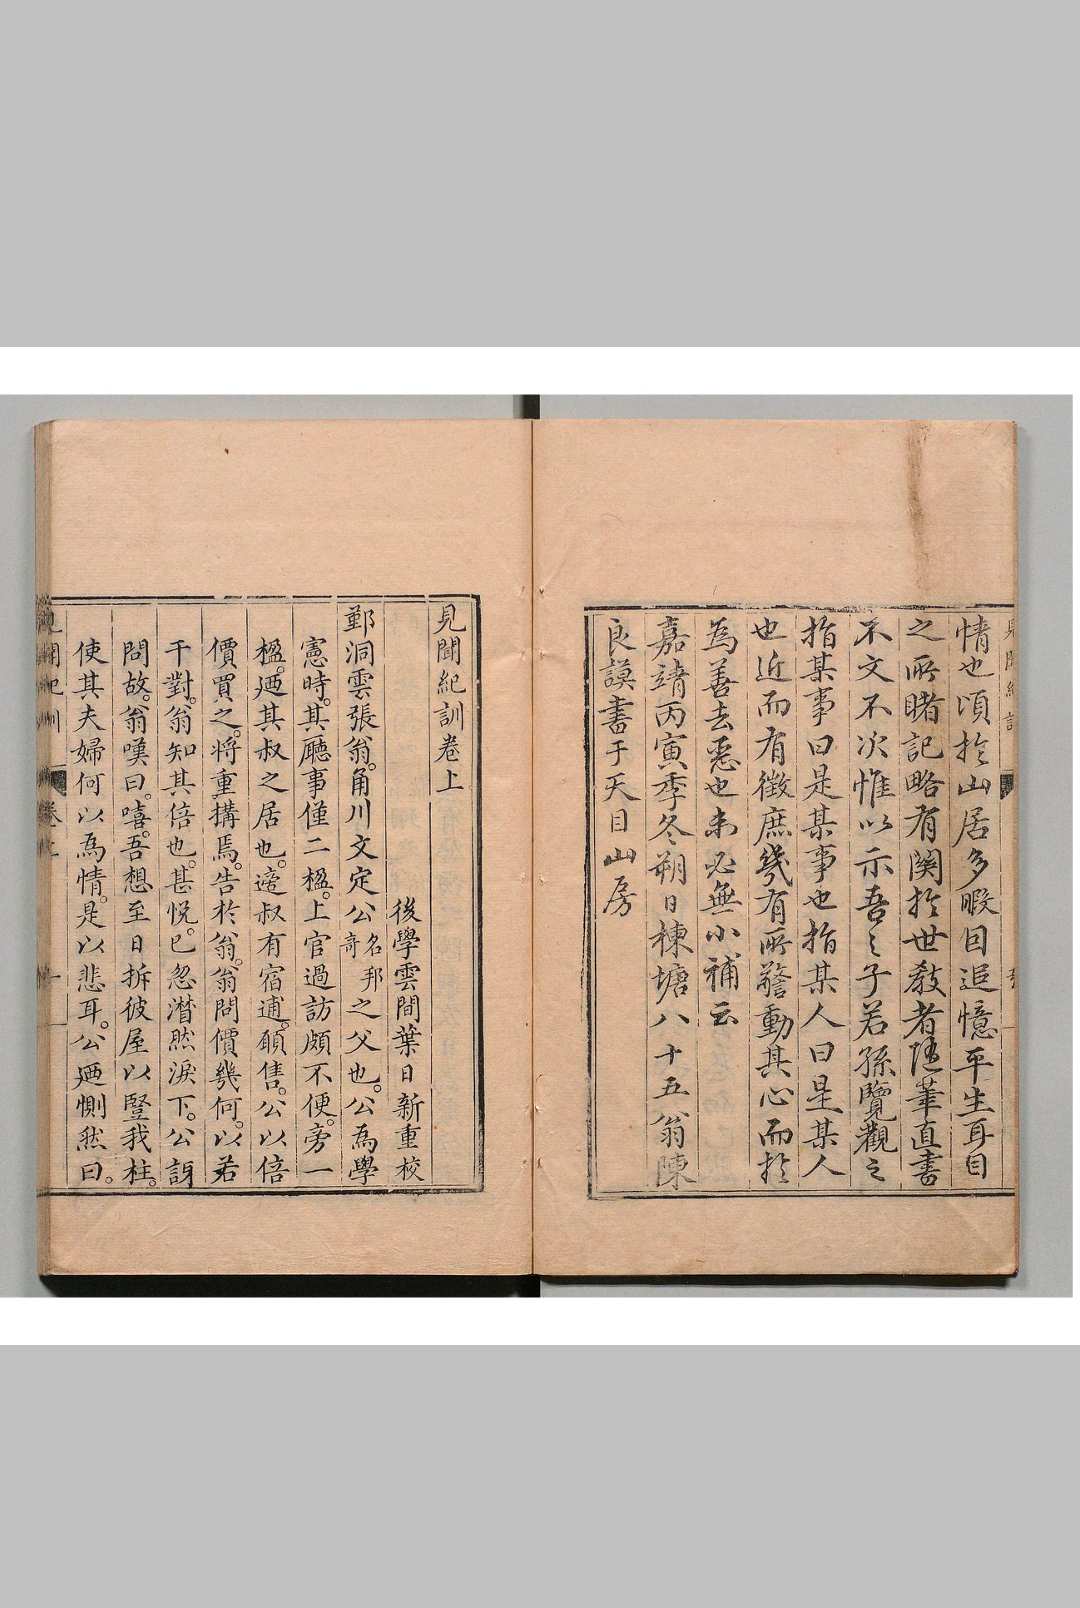 情也頃於山居多暇因追憶平生耳目
之所睹記略有關於世教者隨筆直書
不文不次惟以示吾之子若孫覽觀之
指某事曰是某事也指某人曰是某人
也近而有徵庶幾有所警動其心而於
為善去惡也未必無小補云
嘉靖丙寅季冬朔日棟塘八十五翁陳
良謨書于天目山房
見聞紀訓卷上
後學雲間葉日新重校
鄞洞雲張翁。甬川文定公名邦奇之父也。公為學
憲時。其廳事僅二楹。上官過訪頗不便。旁一
楹。廼其叔之居也。適叔有宿逋。願售。公以倍
價買之。將重搆焉。告於翁。翁問價幾何。以若
干對。翁知其倍也。甚悅。已忽潸然淚下。公訝
問故。翁嘆曰。嘻。吾想至日拆彼屋以豎我柱。
使其夫婦何以為情。是以悲耳。公廼惻然曰。